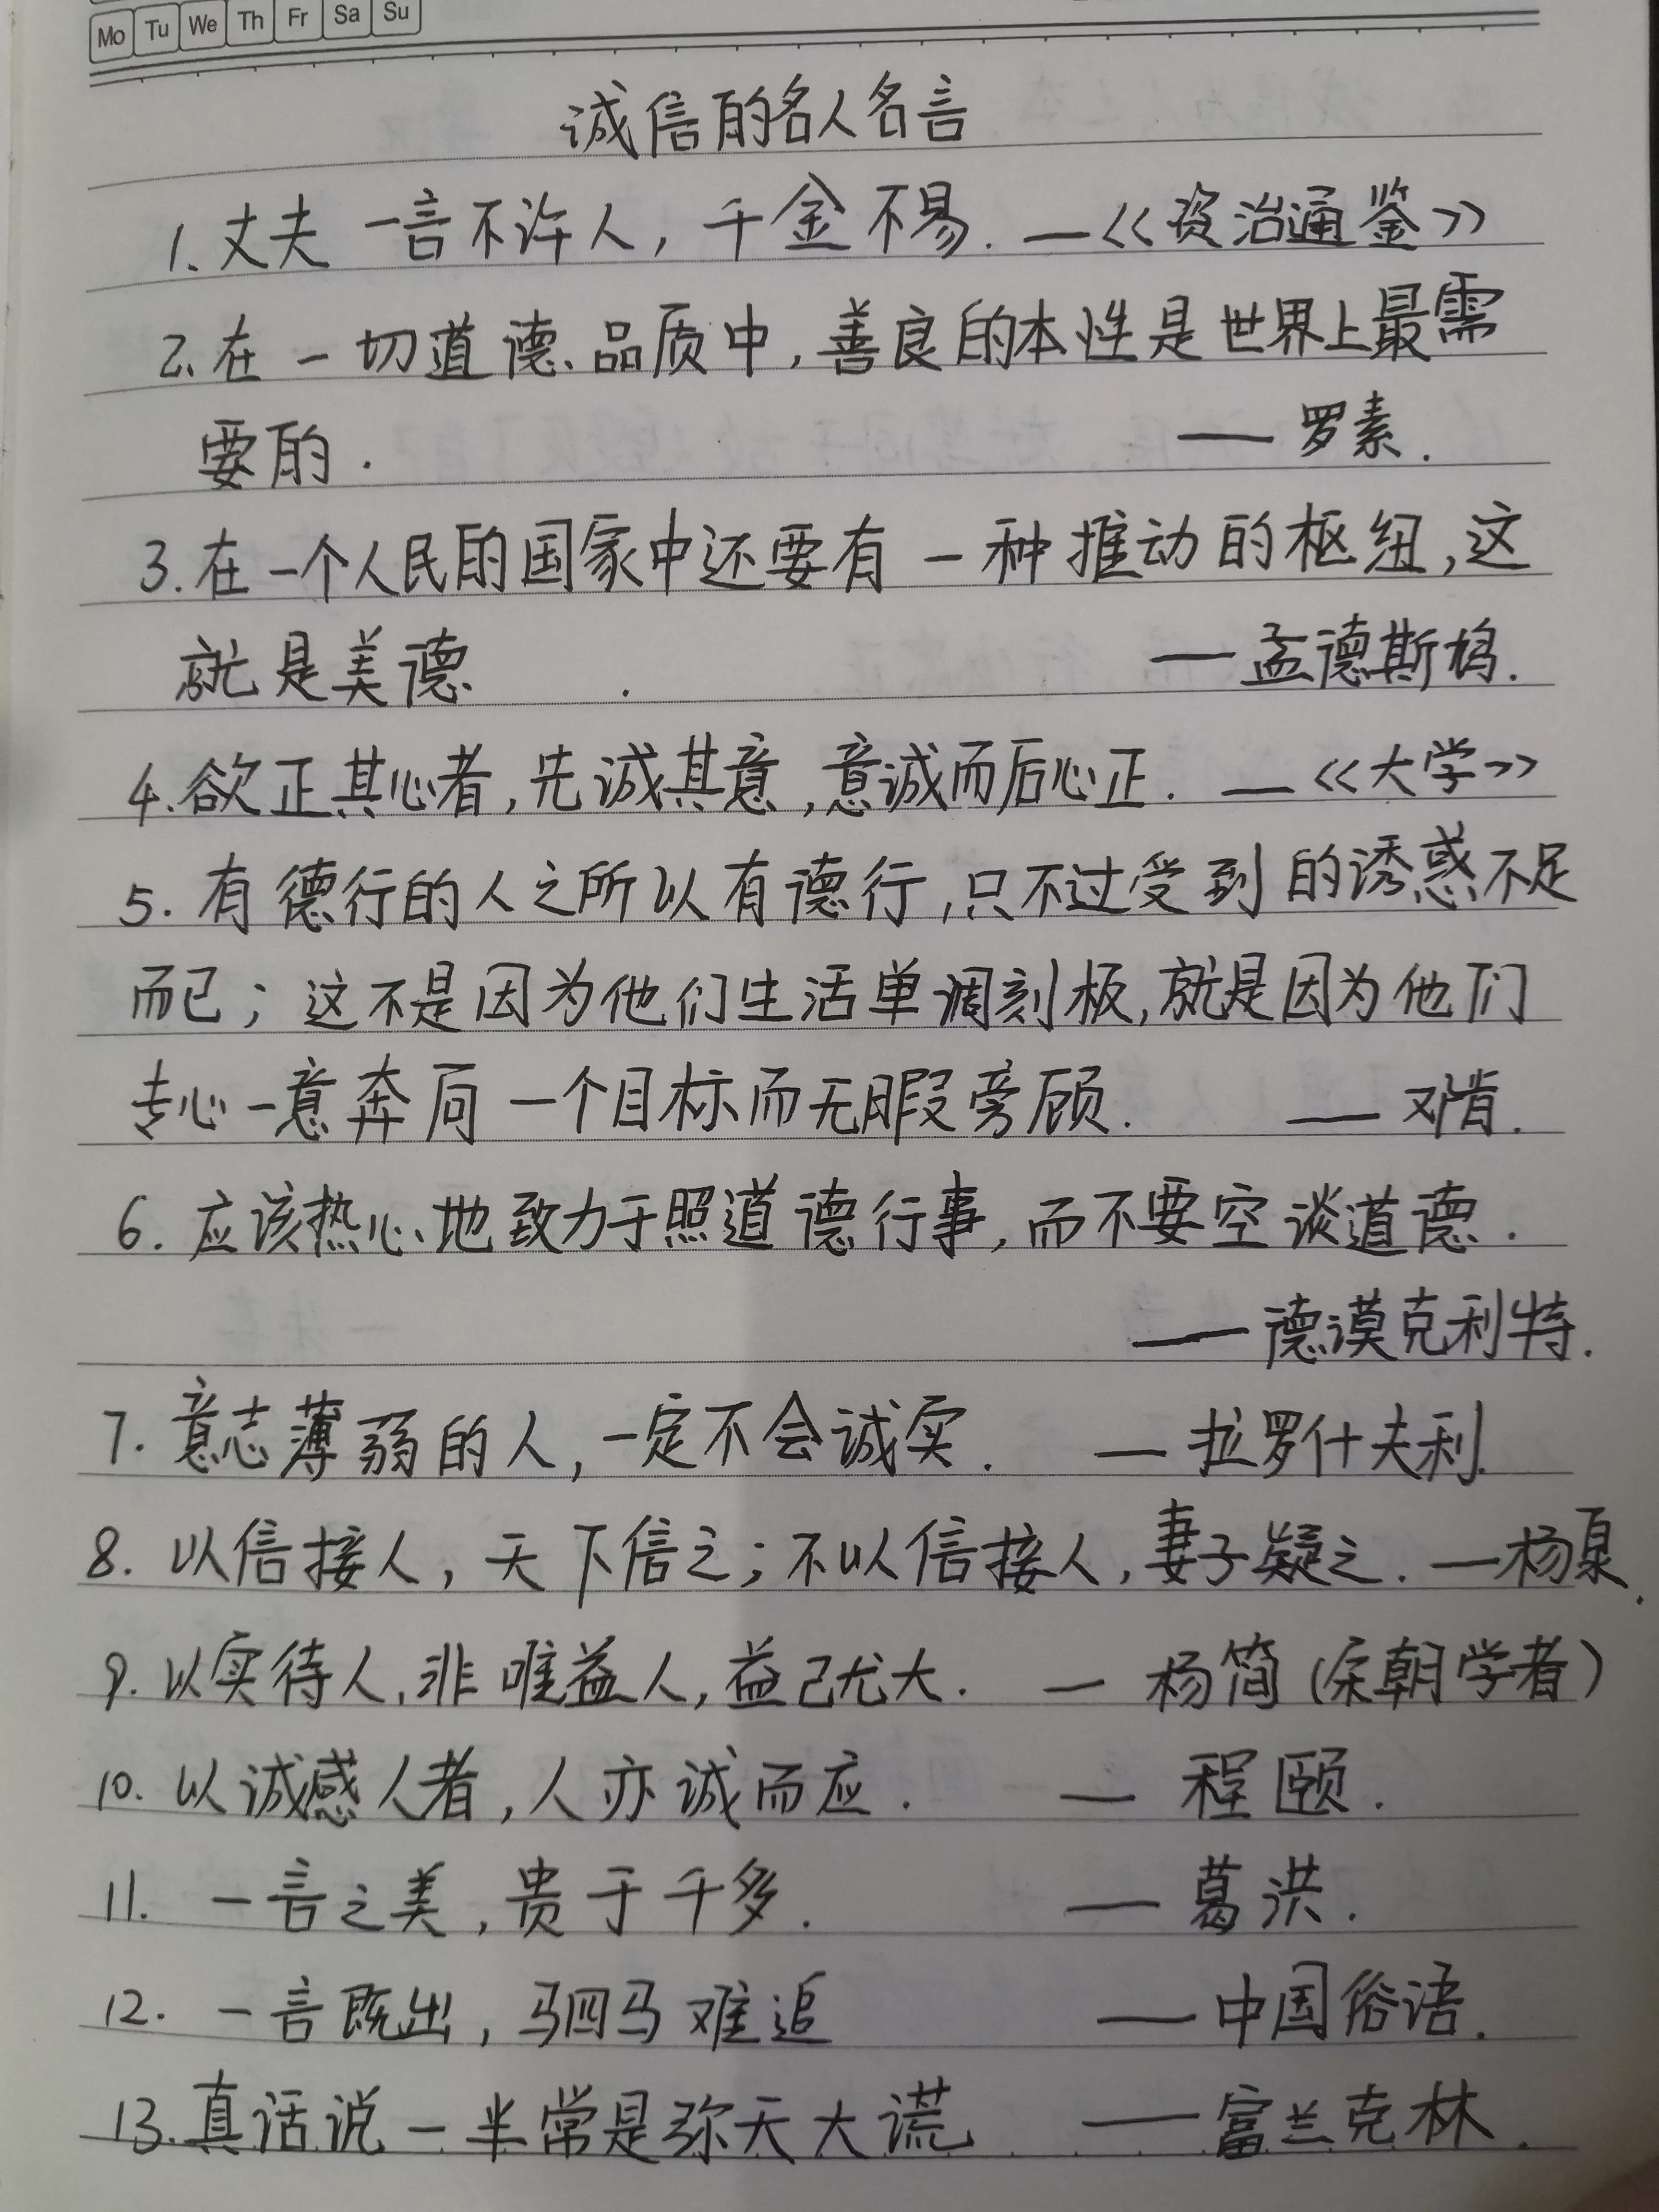 Mo Tu We Th Fr Sa Su
诚信的名人名言
1.丈夫一言不许人,千金不易.—《资治通鉴》
2.在一切道德品质中,善良的本性是世界上最需
要的.——罗素.
3.在一个人民的国家中还要有一种推动的枢纽,这
就是美德.——孟德斯鸠.
4.欲正其心者,先诚其意,意诚而后心正.—《大学》
5.有德行的人之所以有德行,只不过受到的诱惑不足
而已;这不是因为他们生活单调刻板,就是因为他们
专心一意奔向一个目标而无暇旁顾.——邓肯.
6.应该热心地致力于照道德行事,而不要空谈道德.
——德谟克利特.
7.意志薄弱的人,一定不会诚实.—拉罗什夫利.
8.以信接人,天下信之;不以信接人,妻子疑之.—杨泉.
9.以实待人,非唯益人,益己尤大.—杨简(宋朝学者)
10.以诚感人者,人亦诚而应.—程颐.
11.一言之美,贵于千多.—葛洪.
12.一言既出,驷马难追——中国俗语.
13.真话说一半常是弥天大谎——富兰克林.